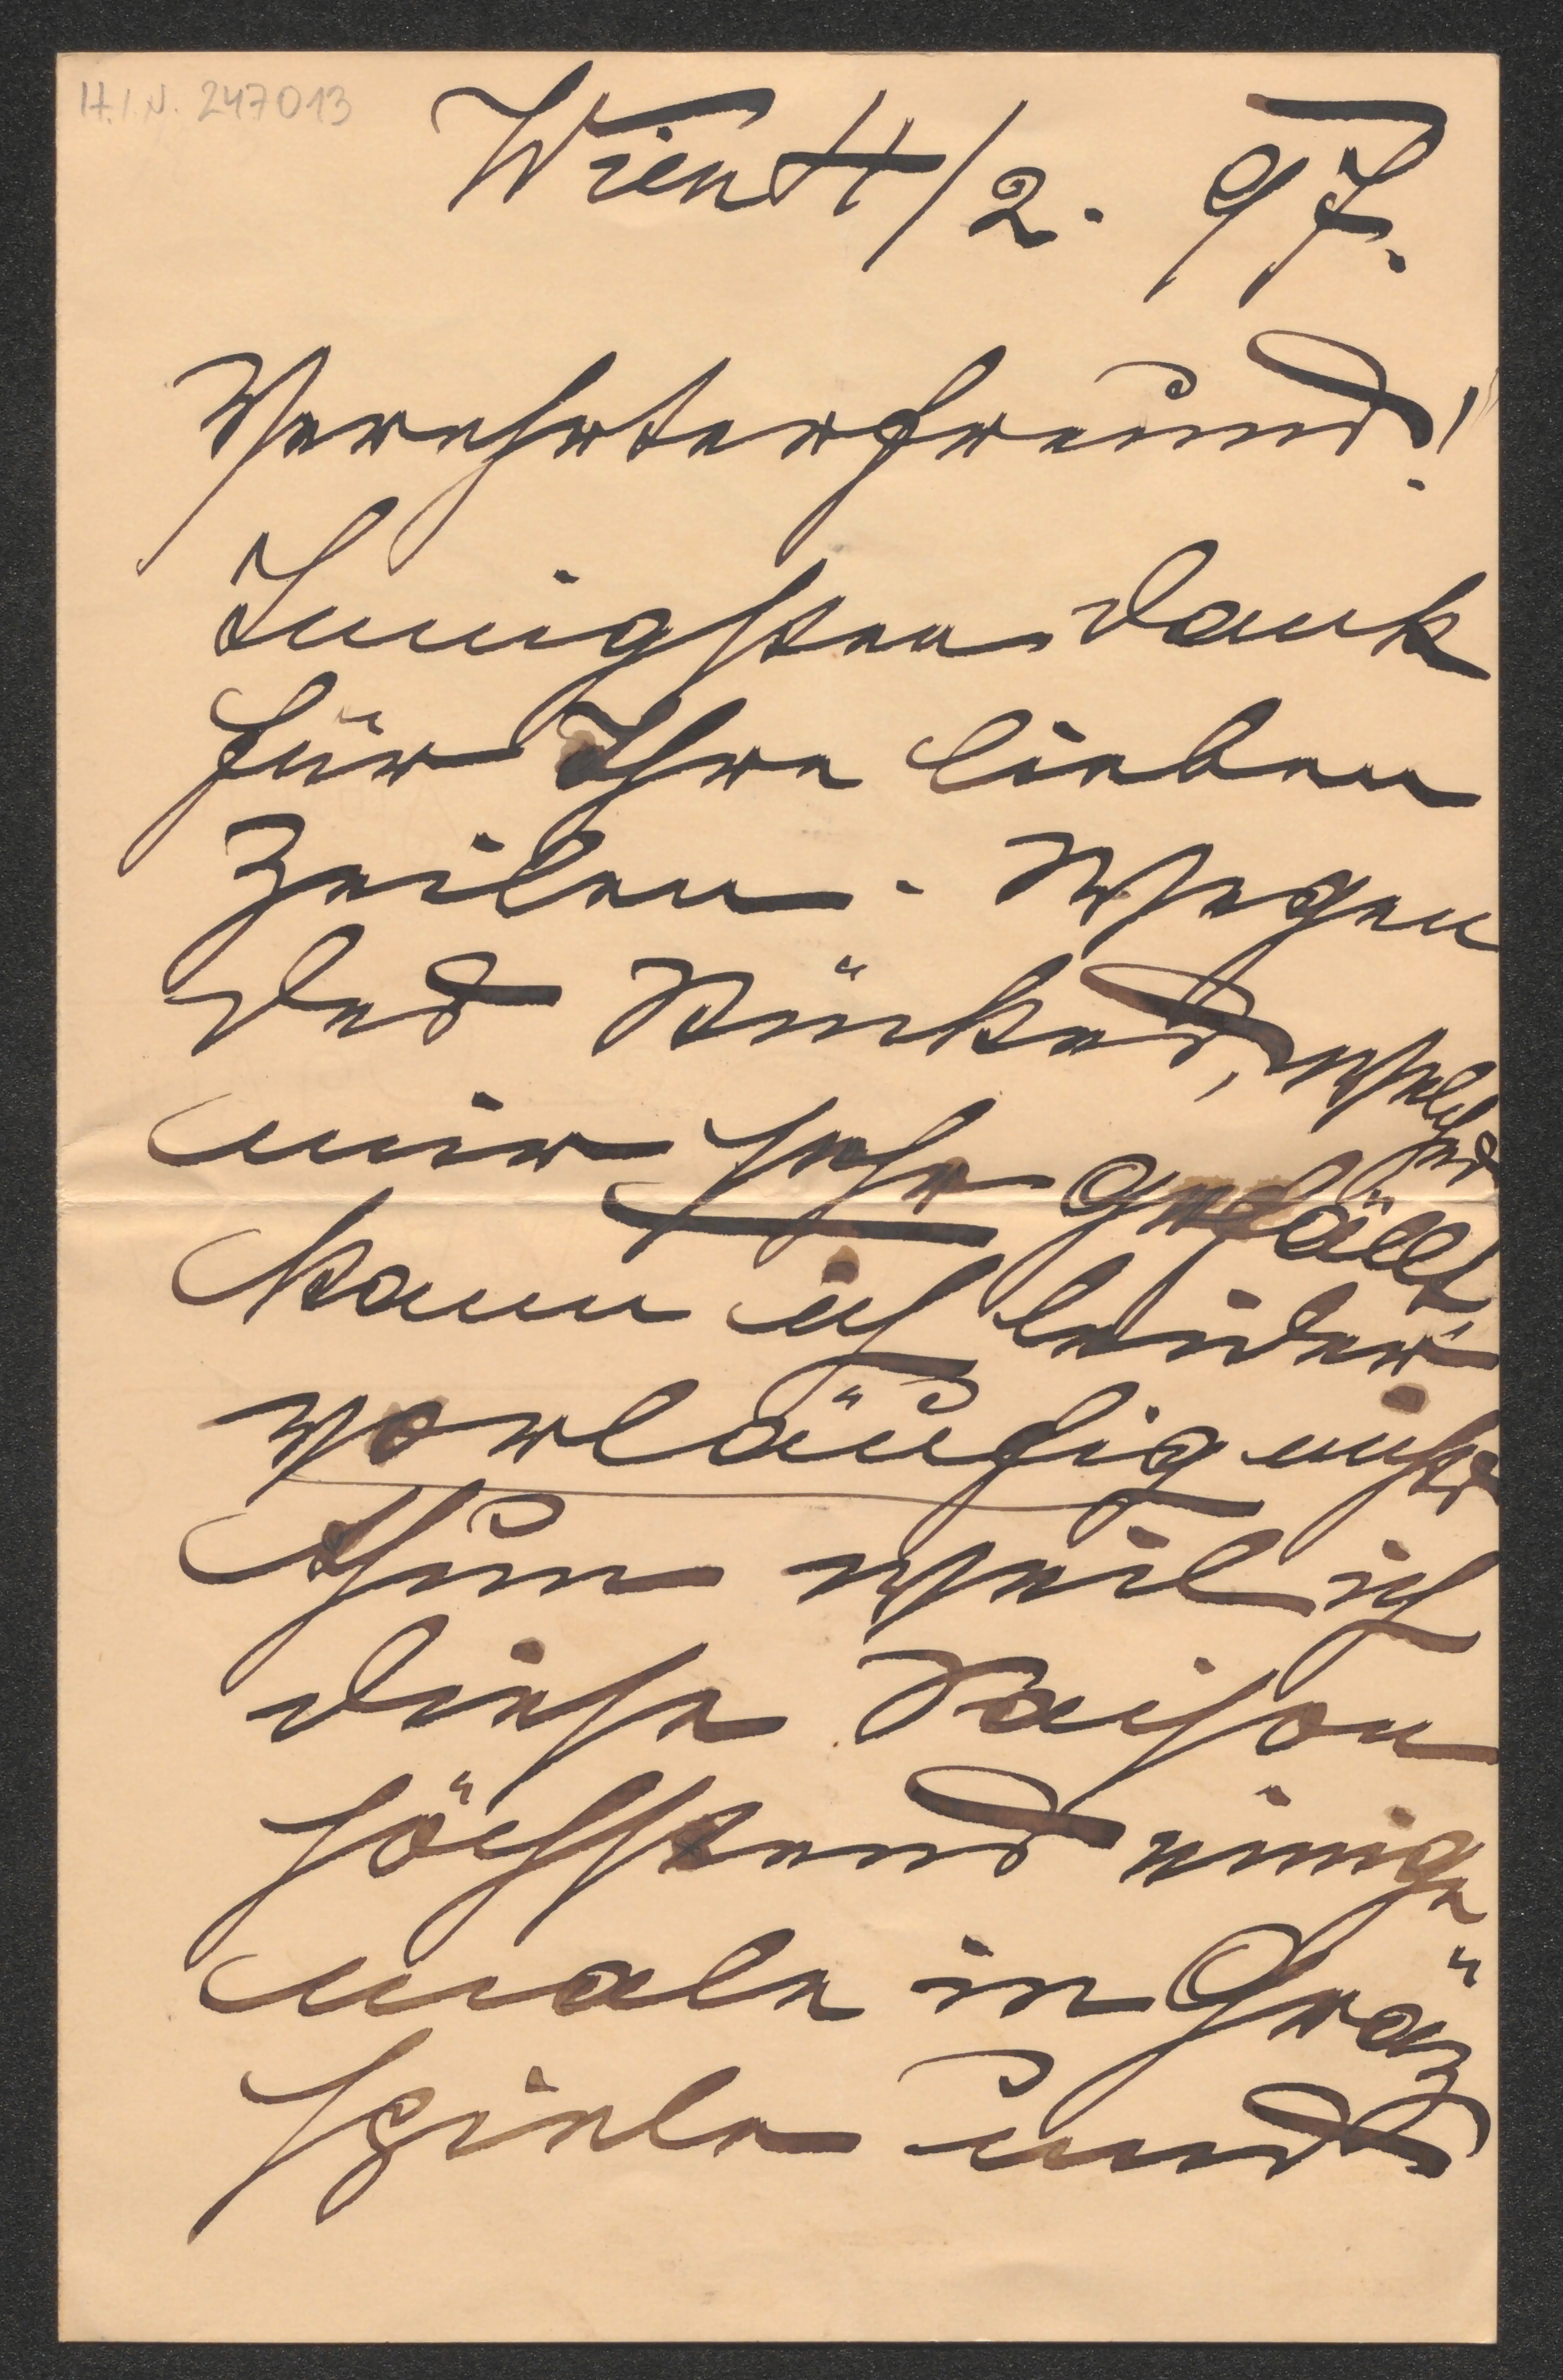 H.I.N. 247013
Wien 4/2. 97.
Verehrter Freund!
Innigsten Dank
für Ihre lieben
Zeilen. Wegen
des Stückes, welches
mir sehr gefällt,
kann ich leider
vorläufig nichts
thun weil ich
diese Saison
höchstens einige
male in Graz
spiele und